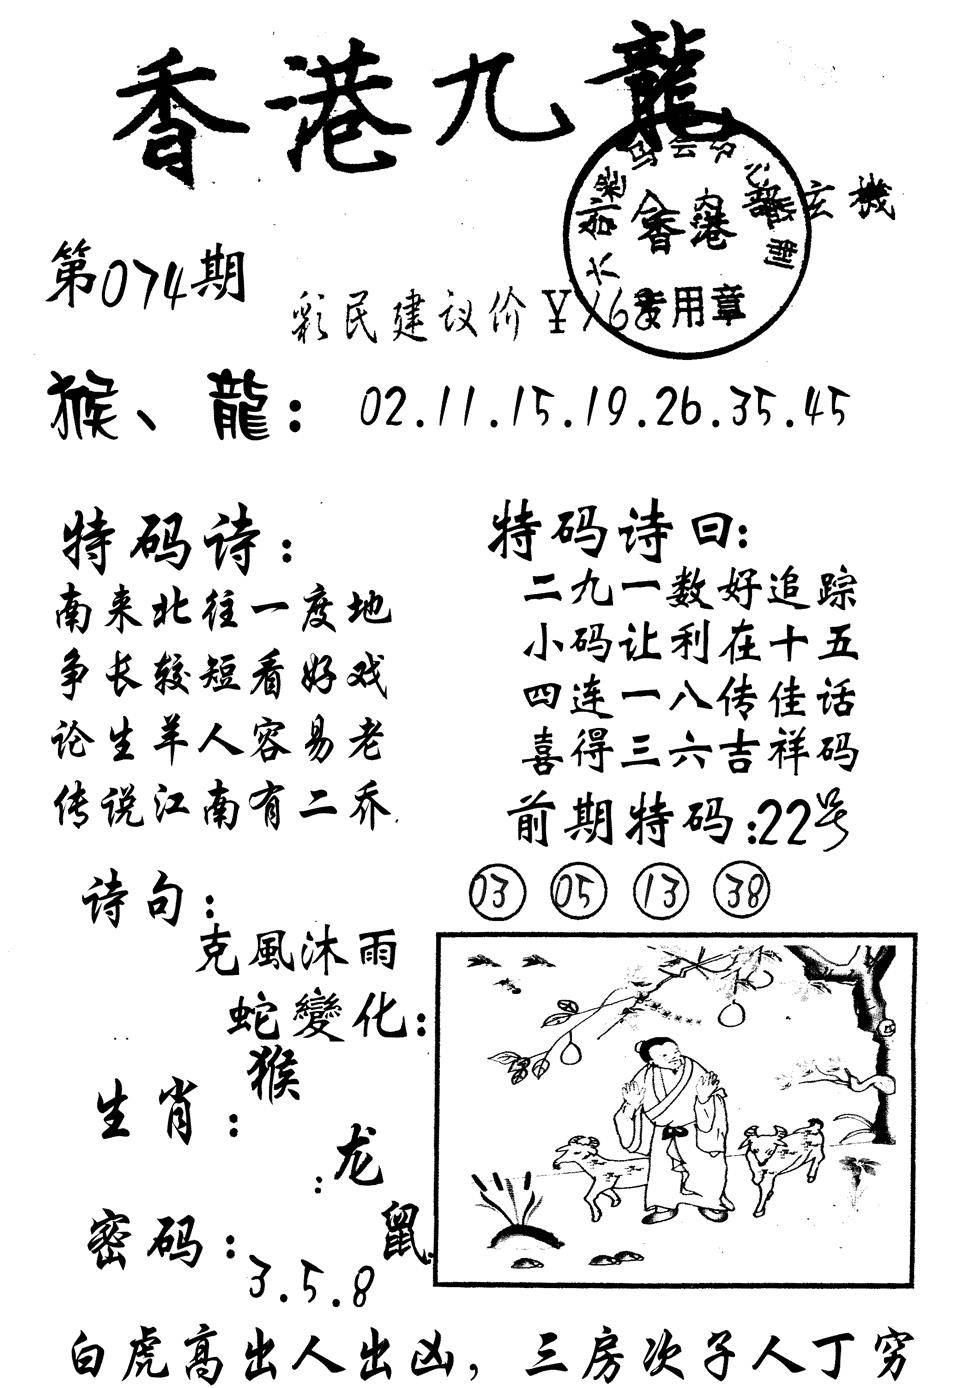 香港九龍
玄機
香港
专用章
第074期
彩民建议价¥168
猴、龍：02.11.15.19.26.35.45
特码诗：
南来北往一度地
争长较短看好戏
论生羊人容易老
传说江南有二乔
特码诗曰：
二九一数好追踪
小码让利在十五
四连一八传佳话
喜得三六吉祥码
前期特码：22号
03 05 13 38
诗句：
克風沐雨
蛇變化：
猴
生肖：
：龙
鼠
密码：
3.5.8
白虎高出人出凶，三房次子人丁穷